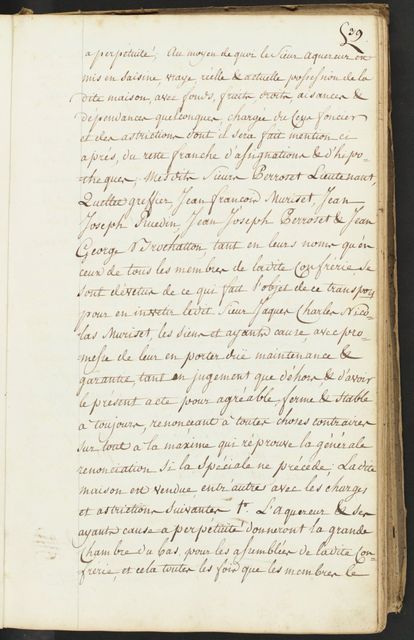 39.
a perpetuité; Au moyen de quoi le Sieur aquereur est
mis en saisine, vraye, réelle & actuelle possession de la
dite maison, avec fonds, fruits droits, aisances &
dépendances quelconques, chargée du Cens foncier
et des astrictions dont il sera fait mention ce
après, du reste franche d'assignations & d'hepo-
theques, Mesdits Sieurs Perroset Lieutenant,
Quellet greffier, Jean francois Muriset, Jean
Joseph Ruedin, Jean Joseph Perroset & Jean
George Wrochatton, tant en leurs noms qu'en
ceux de tous les membres de ladite Confrérie se
sont devetus de ce qui fait l'objet de ce transport
pour en investir ledit Sieur Jaques Charles Nico-
las Muriset, les siens et ayants cause, avec pro-
messe de leur en porter due maintenance &
garantie, tant en jugement que déhors, & d'avoir
le present acte pour agréable, ferme & stable
à toujours, renonceant à toutes choses contraires
sur tout à la maxime qui réprouve la générale
renonciation si la spéciale ne précede; Ladite
maison est vendue entr'autres avec les charges
et astrictions suivantes 1°. L'aquereur & ses
ayants cause a perpetuité donneront la grande
Chambre du bas, pour les assemblées de ladite Con-
frérie, et cela toutes les fois que les membres le